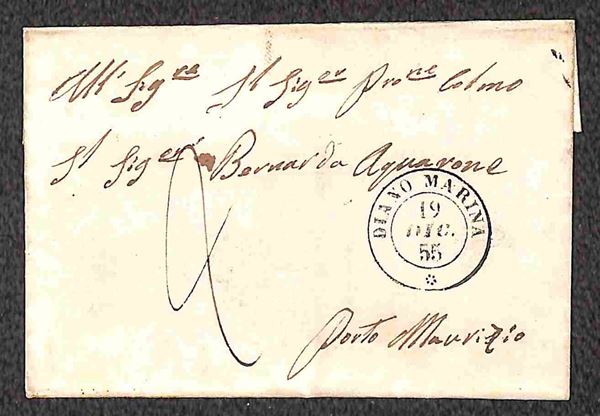 All' Sigra Il Siger Prone Colmo
Il Siger Bernardo Aquarone
2
DIANO MARINA
19
DIC.
55
Porto Maurizio